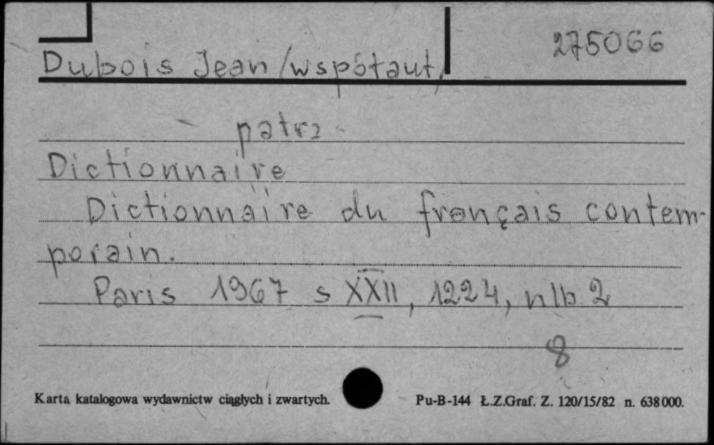 275066
Dubois Jean /współaut/
patrz
Dictionnaire
Dictionnaire du français contem-
porain.
Paris 1967 s XXII, 1224, nlb 2
8
Karta katalogowa wydawnictw ciągłych i zwartych. Pu-B-144 Ł.Z.Graf. Z. 120/15/82 n. 638000.